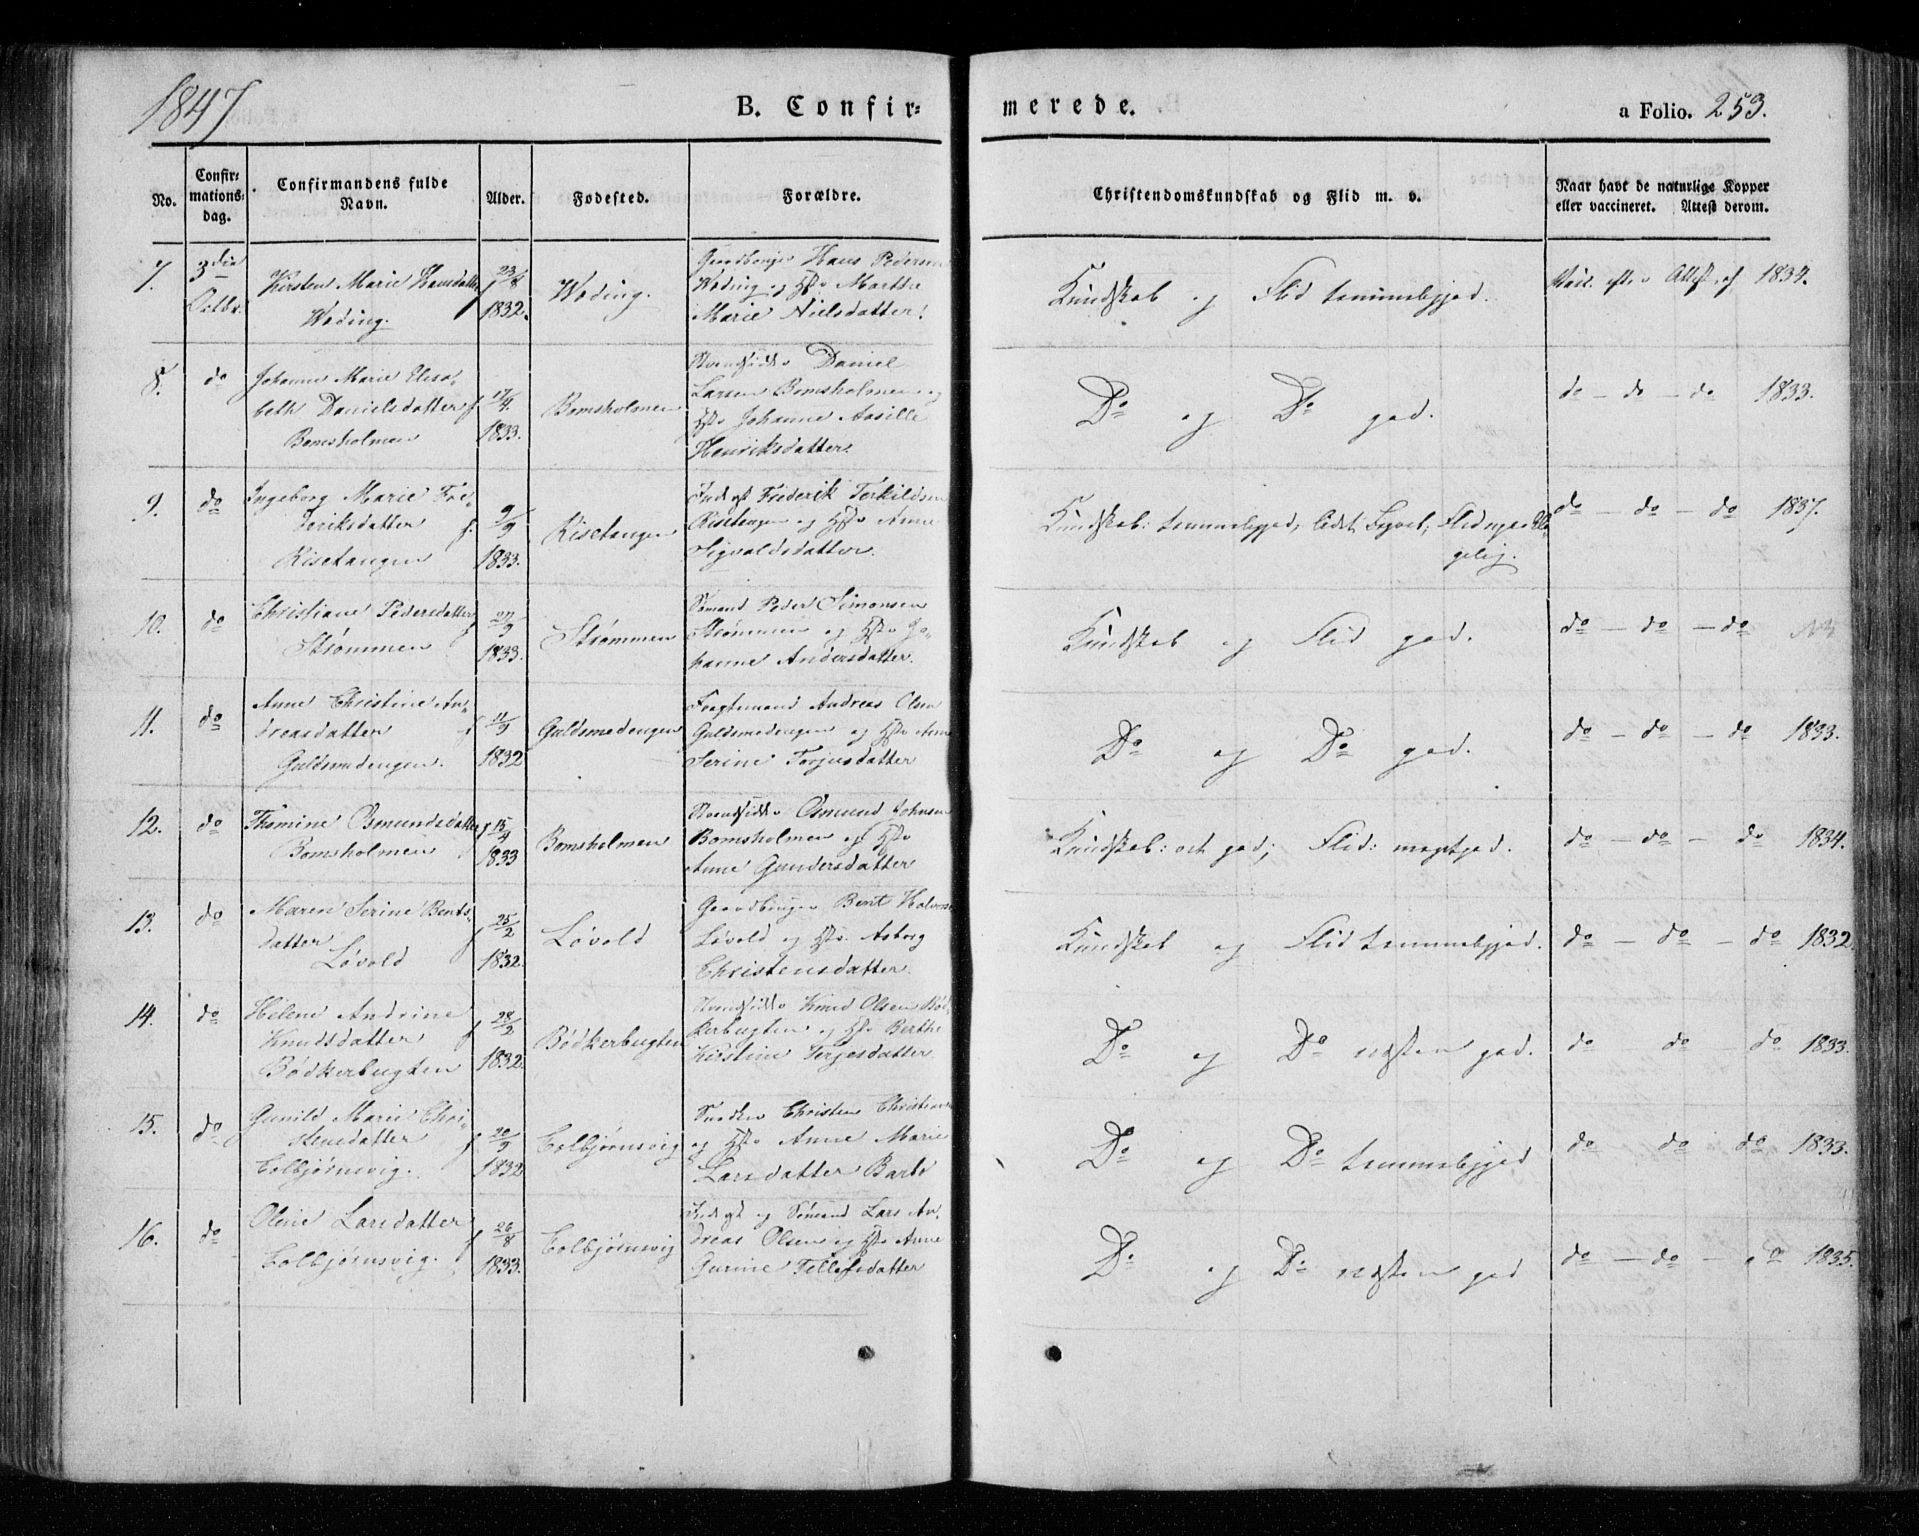 1847
B. Confir-
merede.
a Folio. 253.
No.
Confir-
mations-
dag.
Confirmandens fulde
Navn.
Alder.
Fødested.
Forældre.
Christendomskundskab og Flid m. v.
Naar havt de naturlige Kopper
eller vaccineret. Attest derom.
7.
3die
Octbr.
Kirsten Marie Hansdatter
Woding.
f 23/8
1832.
Woding.
Gaardbruger Hans Pedersen
Woding og Hstr Marthe
Marie Nielsdatter.
Kundskab og Flid temmeliggod.
Vacc. eft. Attest af 1834.
8.
do
Johanne Marie Elisa-
beth Danielsdatter
Bomsholmen
f 17/4
1833.
Bomsholmen
Strandsidder Daniel
Larsen Bomsholmen og
Hstr Johanne Aasille
Henriksdatter.
Do og Do god.
do - do - do 1833.
9.
do
Ingeborg Marie Fre-
deriksdatter
Risetangen
f. 9/9
1833.
Risetangen
Frederik Terkildsen
Risetangen og Hstr Anne
Sigvaldsdatter.
Kundskab: temmeliggod,
do - do - do 1837.
10.
do
Christiane Pedersdatter
Strømmen
f 27/9
1833.
Strømmen
Sømand Peder Simonsen
Strømmen og Hstr Jo-
hanne Andersdatter.
Kundskab og Flid god.
do - do - do
11.
do
Anne Christine An-
dreasdatter
Guldsmedengen.
f 11/9
1832
Guldsmedengen
Fragtemand Andreas Olsen
Guldsmedengen og Hstr Anne
Serine Torjusdatter
Do og Do god.
do - do - do 1833.
12.
do
Thomine Osmundsdatter
Bomsholmen
f 15/4
1833
Bomsholmen
Strandsidder Osmund Johnsen
Bomsholmen og Hstr
Anne Gundersdatter
Kundskab: god; Flid: megetgod.
do - do - do 1834.
13.
do
Maren Serine Bents-
datter
Løvold
f 25/2
1832.
Løvold
Gaardbruger Bent Halvors
Løvold og Hstr. Asborg
Christensdatter.
Kundskab og Flid temmeliggod.
do - do - do 1832.
14.
do
Helene Andrine
Knudsdatter
Bødkerbugten
f 28/2
1832.
Bødkerbugten
Strandsidder Knud Olsen Bød-
kerbugten og Hstr Berthe
Kirstine Terjesdatter.
Do og Do næsten god.
do do do 1833.
15.
do
Gunild Marie Chri-
stensdatter
Colbjørnsvig.
f 20/9
1832
Colbjørnsvig
Snedker Christen Christians
og Hstr Anne Marie
Larsdatter Barbo
Do og Do temmeliggod
do do do 1833.
16.
do
Oline Larsdatter
Colbjørnsvig.
f 26/8
1833.
Colbjørnsvig
og Sømand Lars An-
dreas Olsen og Hstr Anne
Gurine Tellefsdatter
Do og Do næsten god
do - do - do 1835.